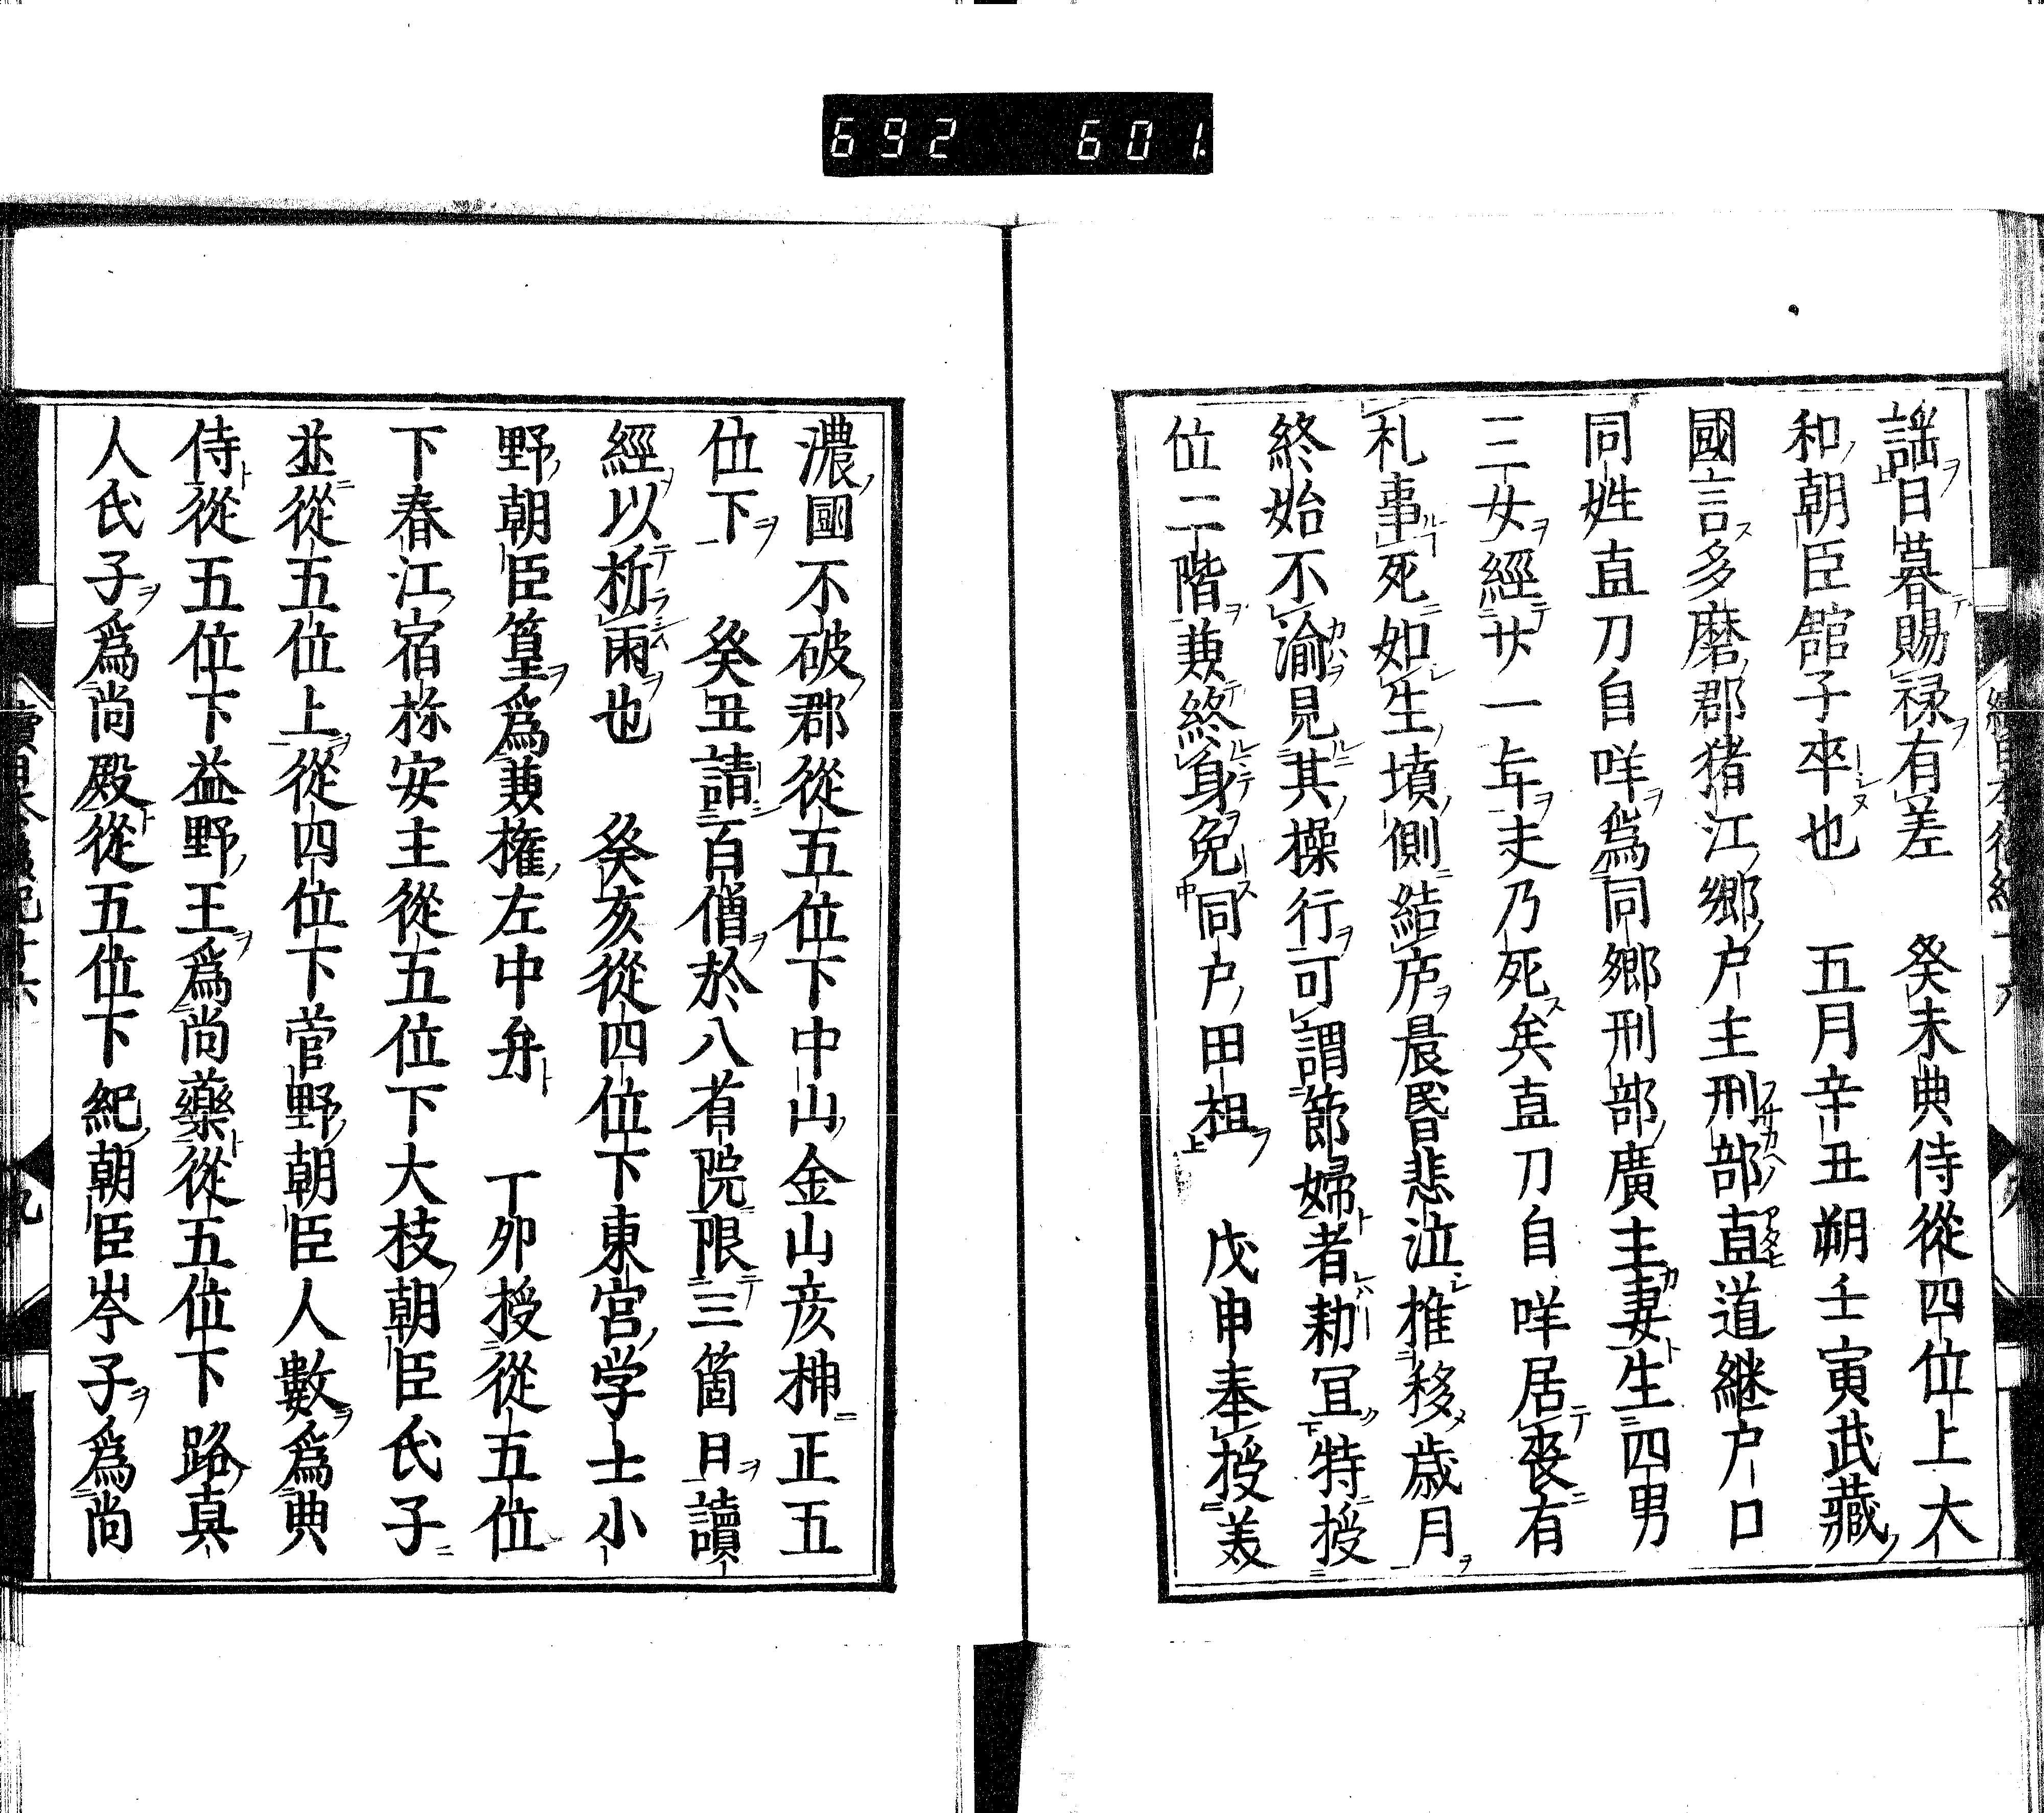 692 601
謡日暮賜禄有差 癸未典侍從四位上大
和朝臣舘子卒也 五月辛丑朔壬寅武藏
國言多磨郡猪江郷戸主刑部直道継戸口
同姓直刀自咩爲同郷刑部廣主妻生四男
三女經廿一年夫乃死矣直刀自咩居喪有
礼事死如生墳側結庐晨昏悲泣推移歳月
終始不渝見其操行可謂節婦者勅冝特授
位二階兼終身免同戸田租 戊申奉授美
濃國不破郡從五位下中山金山彦神正五
位下 癸丑請百僧於八省院限三箇日讀
經以祈雨也 癸亥從四位下東宮学士小
野朝臣篁爲兼權左中弁 丁卯授從五位
下春江宿祢安主從五位下大枝朝臣氏子
並從五位上從四位下菅野朝臣人數爲典
侍從五位下益野王爲尚藥從五位下路真
人氏子爲尚殿從五位下紀朝臣岑子爲尚